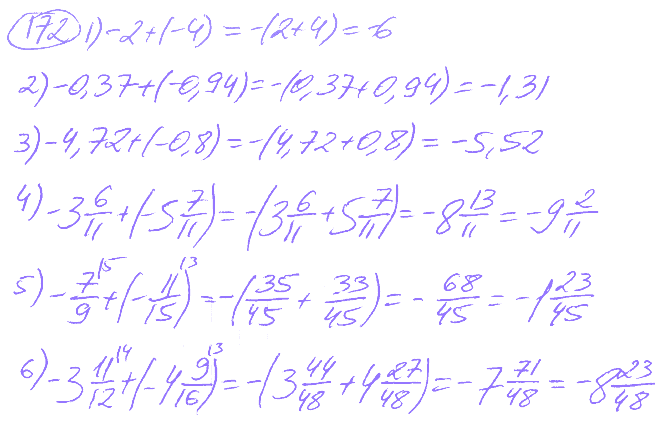 172 1) -2+(-4) = -(2+4) = -6
2) -0,37+(-0,94) = -(0,37+0,94) = -1,31
3) -4,72+(-0,8) = -(4,72+0,8) = -5,52
4) -3 6/11 + (-5 7/11) = -(3 6/11 + 5 7/11) = -8 13/11 = -9 2/11
5) -7/9 \5 + (-11/15 \3) = -(35/45 + 33/45) = -68/45 = -1 23/45
6) -3 11/12 \4 + (-4 9/16 \3) = -(3 44/48 + 4 27/48) = -7 71/48 = -8 23/48